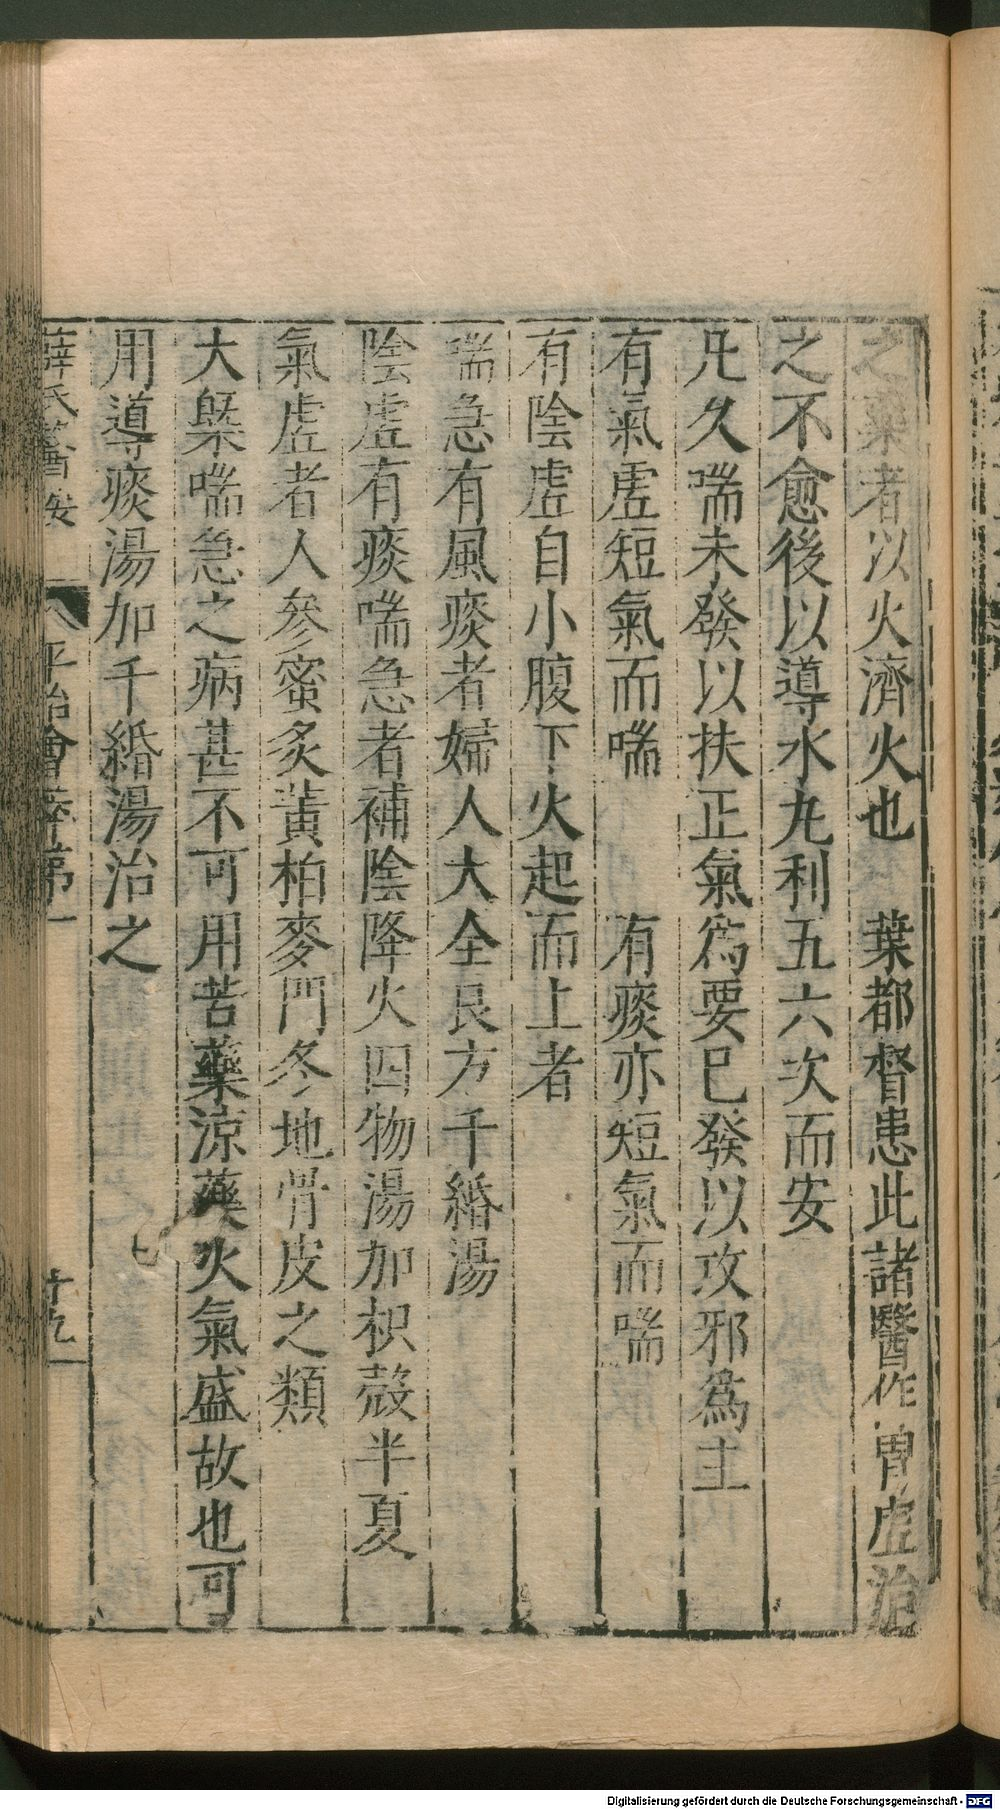 之藥者以火濟火也　葉都督患此諸醫作胃虛治
之不愈後以導水丸利五六次而安
凡久喘未發以扶正氣爲要已發以攻邪爲主
有氣虛短氣而喘　有痰亦短氣而喘
有陰虛自小腹下火起而上者
喘急有風痰者婦人大全良方千緡湯
陰虛有痰喘急者補陰降火四物湯加枳殼半夏
氣虛者人參蜜炙黃柏麥門冬地骨皮之類
大槩喘急之病甚不可用苦藥涼藥火氣盛故也可
用導痰湯加千緡湯治之
薛氏醫按　平治會萃第一　廿九
Digitalisierung gefördert durch die Deutsche Forschungsgemeinschaft - DFG